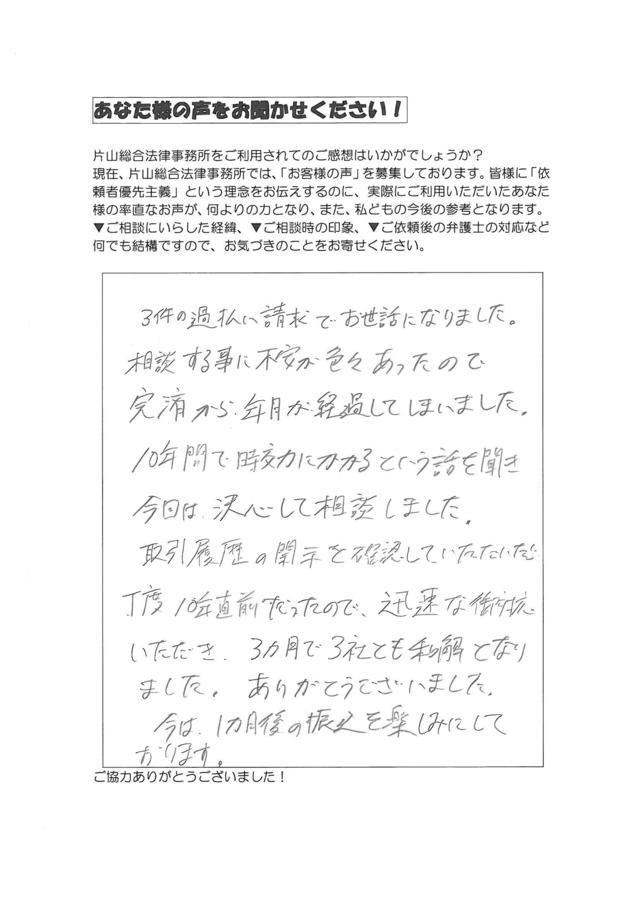 あなた様の声をお聞かせください！
片山総合法律事務所をご利用されてのご感想はいかがでしょうか？
現在、片山総合法律事務所では、「お客様の声」を募集しております。皆様に「依
頼者優先主義」という理念をお伝えするのに、実際にご利用いただいたあなた
様の率直なお声が、何よりの力となり、また、私どもの今後の参考となります。
▼ご相談にいらした経緯、▼ご相談時の印象、▼ご依頼後の弁護士の対応など
何でも結構ですので、お気づきのことをお寄せください。
3件の過払い請求でお世話になりました。
相談する事に不安が色々あったので
完済から年月が経過してしまいました。
10年間で時効にかかるという話を聞き
今回は、決心して相談しました。
取引履歴の開示を確認していただいた
丁度10年直前だったので、迅速な
いただき、3カ月で3社とも和解となり
ました。ありがとうございました。
今は、1カ月後の振込を楽しみにして
おります。
ご協力ありがとうございました！